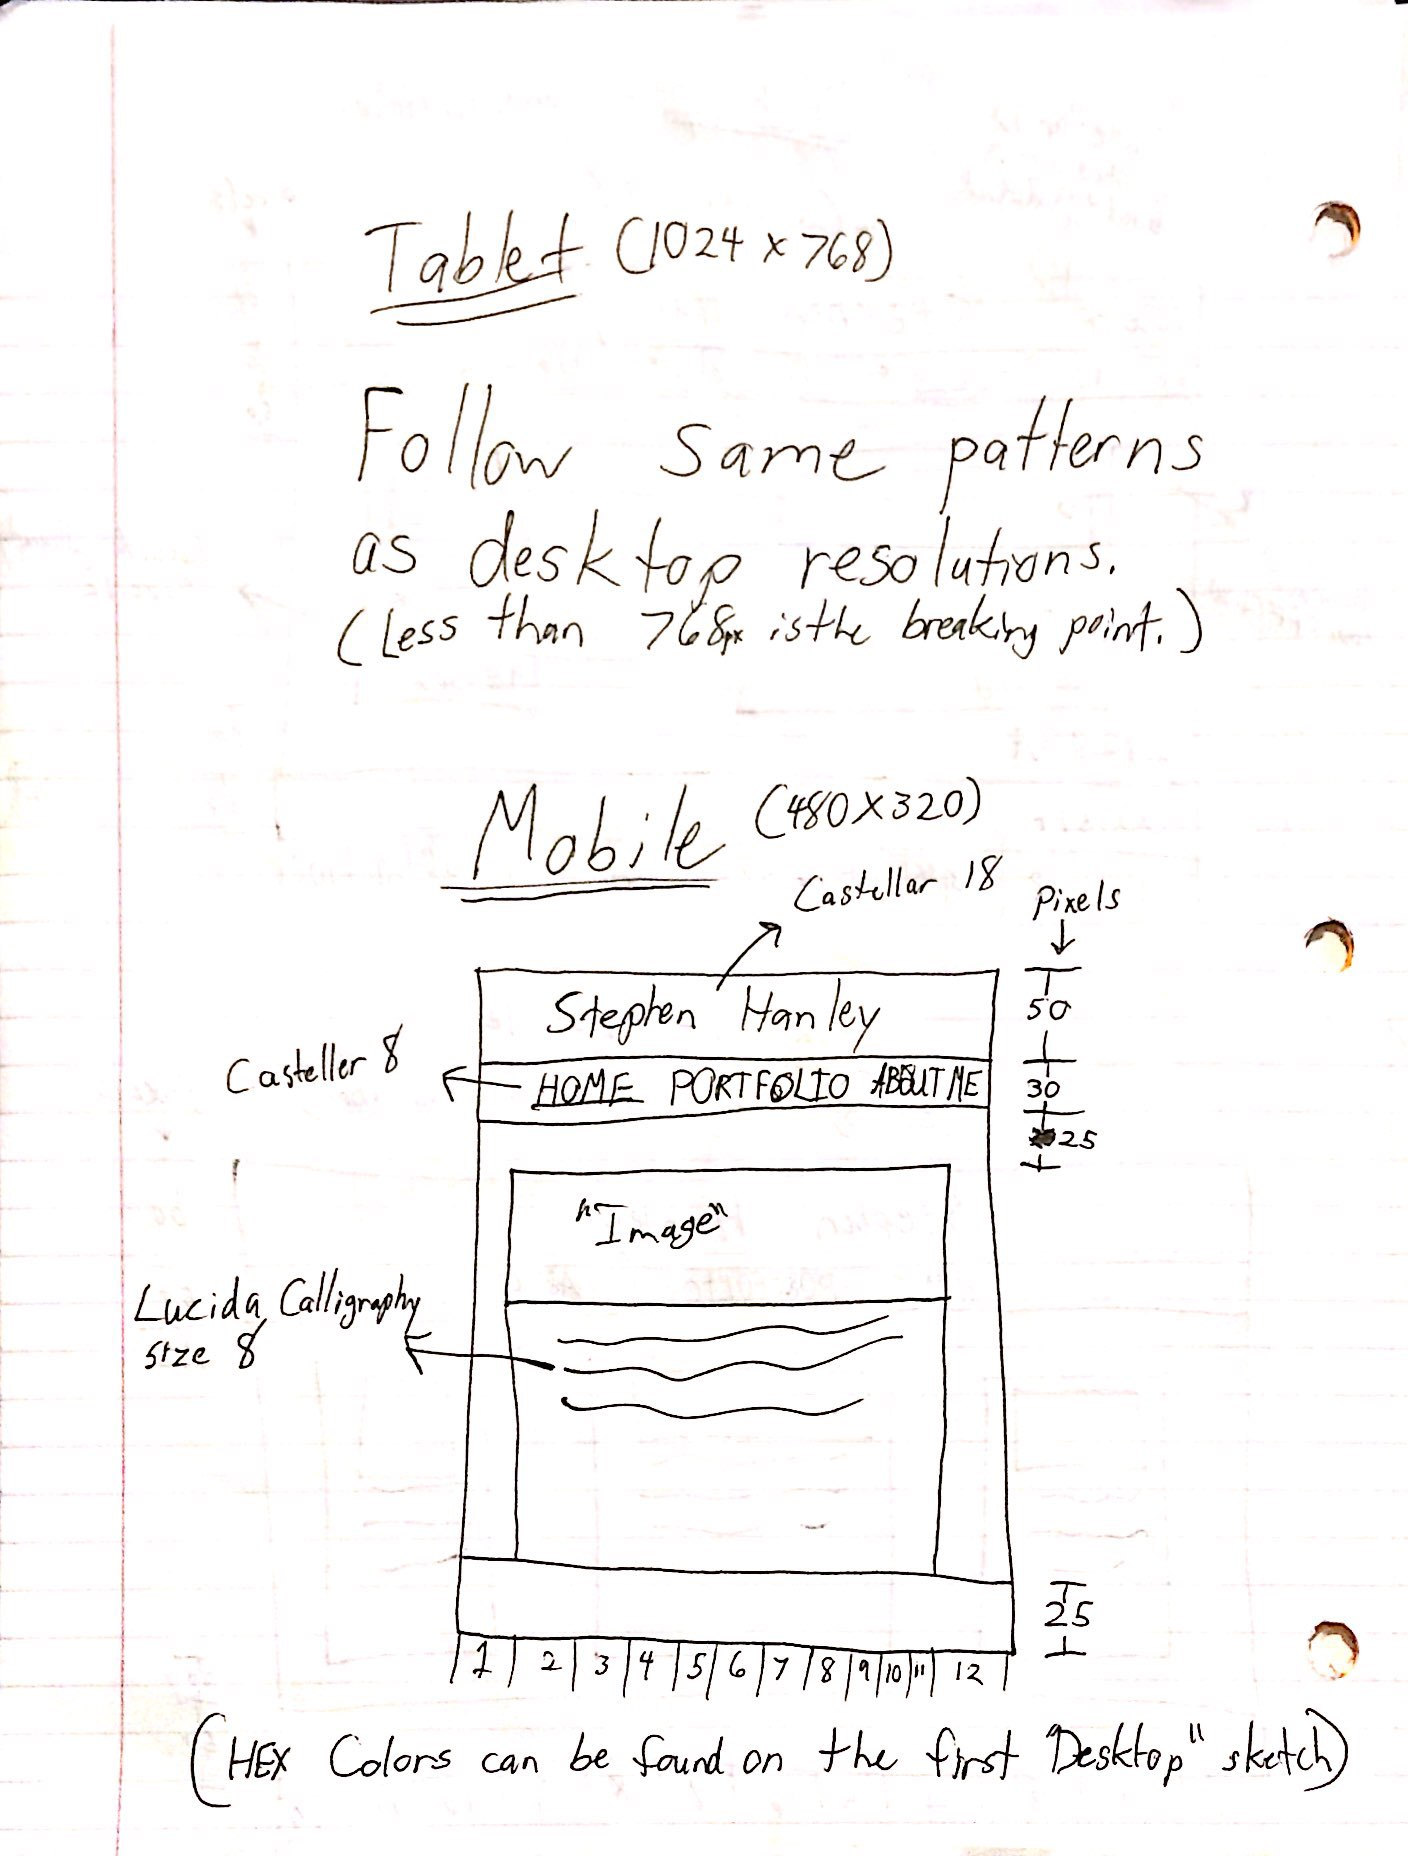 Tablet (1024 x 768)
Follow same patterns
as desktop resolutions.
(Less than 768px is the breaking point.)
Mobile (480X320)
Castellar 18
Pixels
Stephen Hanley
50
Casteller 8
HOME PORTFOLIO ABOUT ME
30
25
"Image"
Lucida Calligraphy
size 8
25
1 2 3 4 5 6 7 8 9 10 11 12
(HEX Colors can be found on the first "Desktop" sketch)